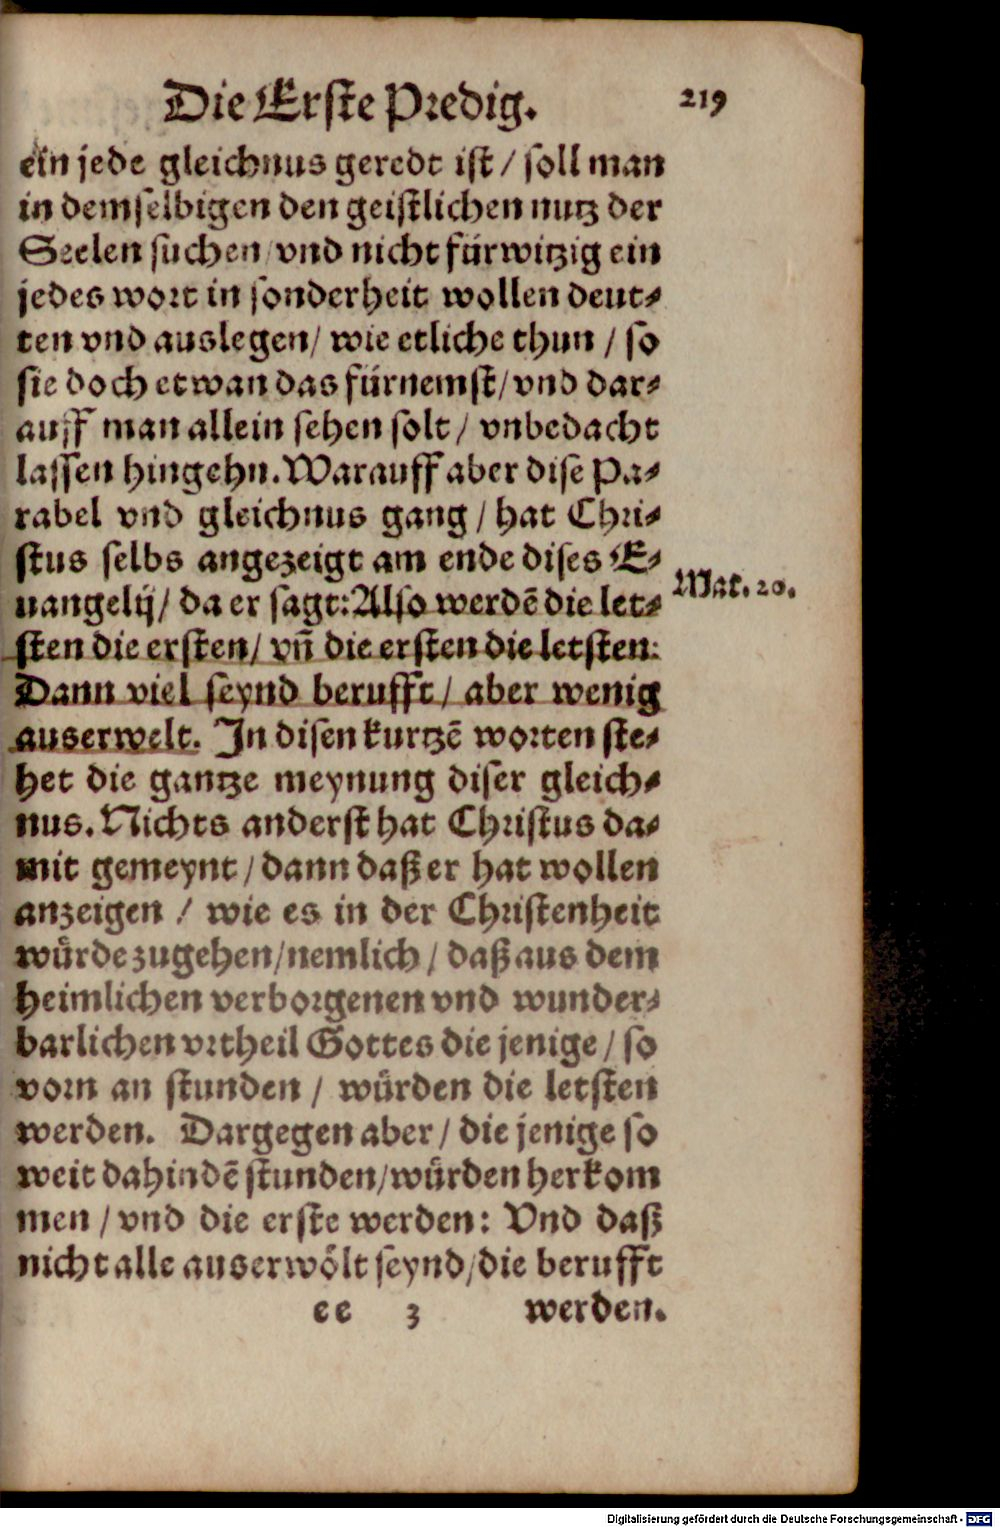 Die Erste Predig. 219
ein jede gleichnus geredt ist / soll man
in demselbigen den geistlichen nutz der
Seelen suchen / vnd nicht fürwitzig ein
jedes wort in sonderheit wollen deut⸗
ten vnd auslegen / wie etliche thun / so
sie doch etwan das fürnemst / vnd dar⸗
auff man allein sehen solt / vnbedacht
lassen hingehn. Warauff aber dise Pa⸗
rabel vnd gleichnus gang / hat Chri⸗
stus selbs angezeigt am ende dises E⸗
uangelij / da er sagt: Also werdẽ die let⸗
Mat. 20.
sten die ersten / vñ die ersten die letsten:
Dann viel seynd berufft / aber wenig
auserwelt. In disen kurtzẽ worten ste⸗
het die gantze meynung diser gleich⸗
nus. Nichts anderst hat Christus da⸗
mit gemeynt / dann daß er hat wollen
anzeigen / wie es in der Christenheit
wuͤrde zugehen / nemlich / daß aus dem
heimlichen verborgenen vnd wunder⸗
barlichen vrtheil Gottes die jenige / so
vorn an stunden / wuͤrden die letsten
werden. Dargegen aber / die jenige so
weit dahindẽ stunden / wuͤrden herkom
men / vnd die erste werden: Vnd daß
nicht alle auserwoͤlt seynd / die berufft
ee 3 werden.
Digitalisierung gefördert durch die Deutsche Forschungsgemeinschaft - DFG